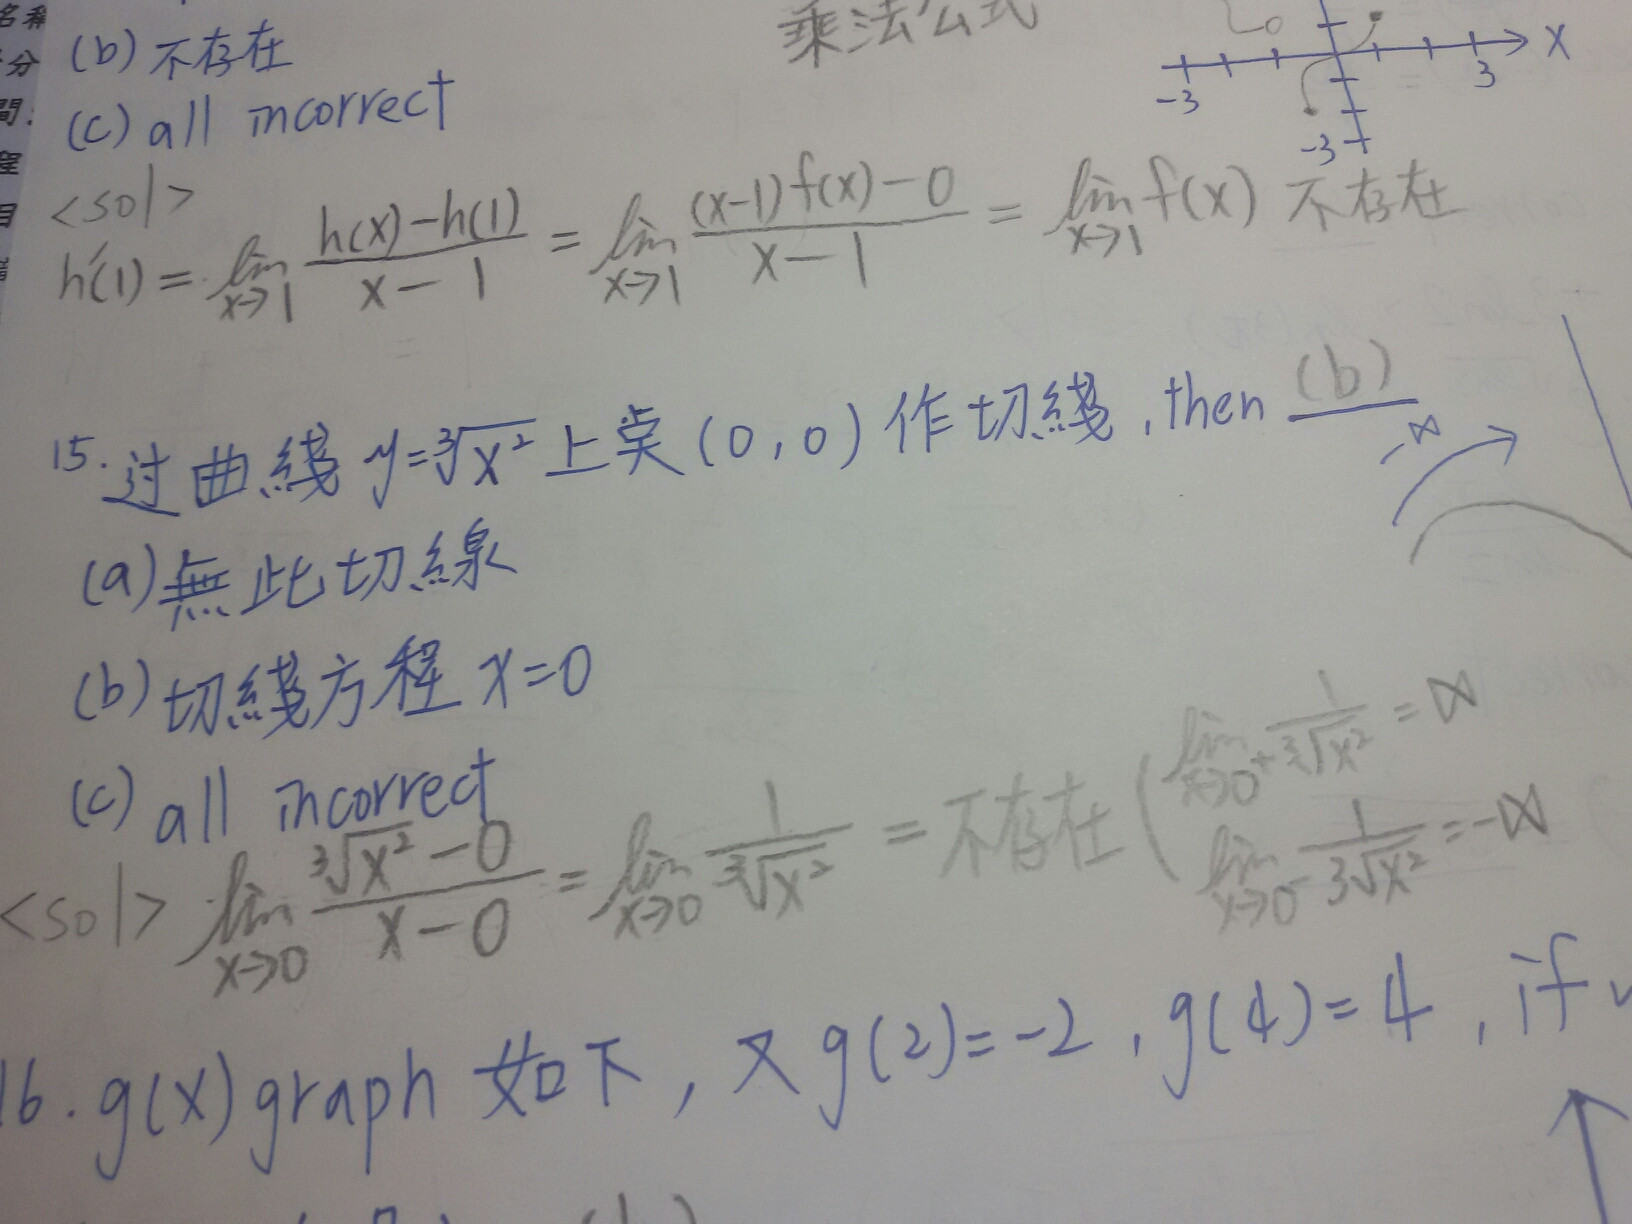 名稱
分
間:
程
目
乘法公式
(b) 不存在
(c) all incorrect
X
-3
3
-3
<sol>
h'(1) = lim x→1 h(x)-h(1) / x-1 = lim x→1 (x-1)f(x)-0 / x-1 = lim x→1 f(x) 不存在
15. 过曲綫 y=∛x² 上奌(0,0)作切綫, then (b)
-∞
(a) 無此切線
(b) 切綫方程 x=0
(c) all incorrect
<sol> lim x→0 ∛x² -0 / x-0 = lim x→0 1/∛x² = 不存在 ( lim x→0⁺ 1/∛x² = ∞
lim x→0⁻ 1/3√x² = -∞
16. g(x) graph 如下, 又 g(2)=-2, g(4)=4, if